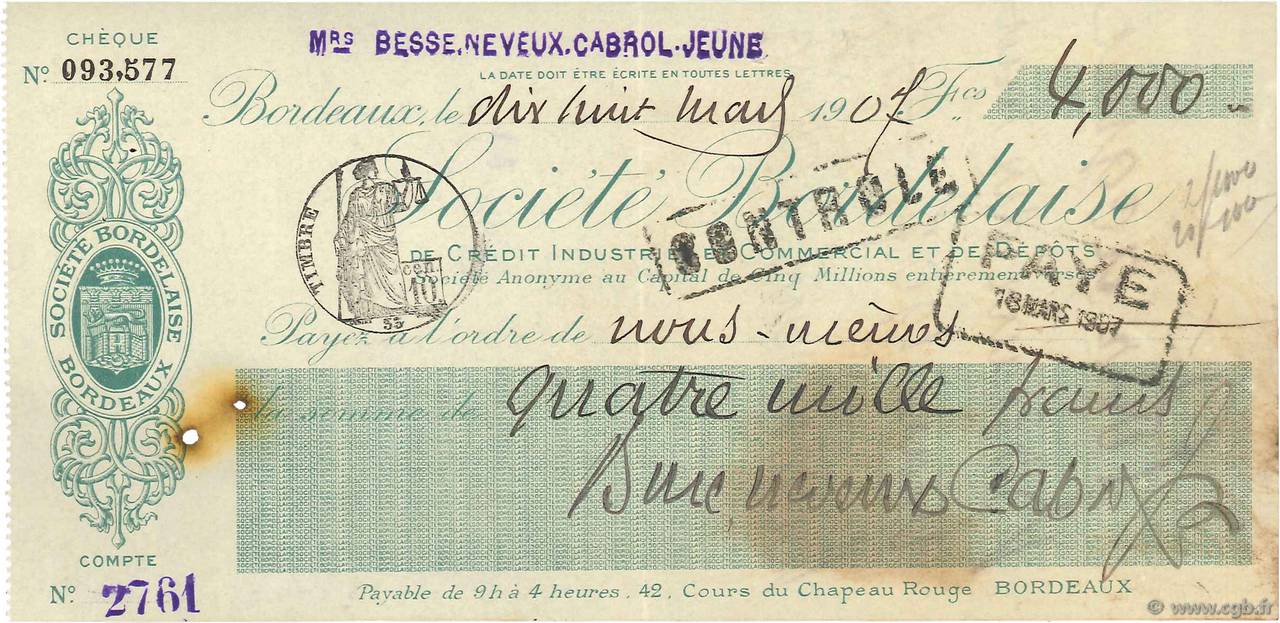 CHÈQUE
Nº 093,577
MRS BESSE.NEVEUX.CABROL-JEUNE
LA DATE DOIT ÊTRE ÉCRITE EN TOUTES LETTRES
Bordeaux, le dix huit Mars 1907. Fcs 4,000
Société Bordelaise
DE CRÉDIT INDUSTRIEL & COMMERCIAL ET DE DÉPÔTS
Société Anonyme au Capital de Cinq Millions entièrement versés
TIMBRE
10 cen
55
CONTROLE
PAYE
18 MARS 1907
Payez à l'ordre de nous-mêmes
la somme de quatre mille francs
Besse neveux Cabrol
SOCIÉTÉ BORDELAISE
BORDEAUX
COMPTE
Nº 2761
Payable de 9h à 4 heures, 42, Cours du Chapeau Rouge BORDEAUX
© www.cgb.fr